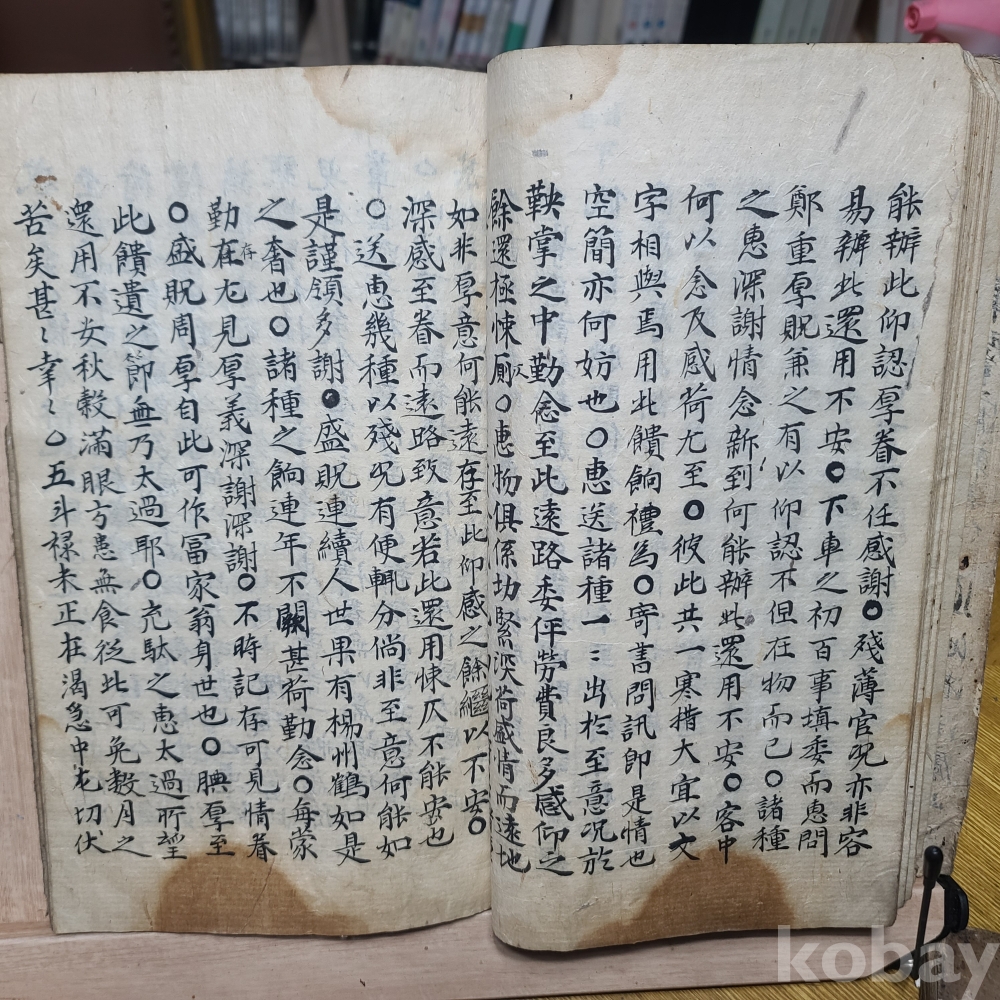 能辦此仰認厚眷不任感謝○殘薄官況亦非容
易辨此還用不安○下車之初百事填委而惠問
鄭重厚貺兼之有以仰認不但在物而已○諸種
之惠深謝情念新到何能辦此還用不安○容中
何以念及感荷尤至○彼此共一寒措大宜以文
字相與焉用此饋餉禮爲○寄書問訊即是情也
空簡亦何妨也○惠送諸種一〻出於至意況於
鞅掌之中勤念至此遠路委伻勞費良多感仰之
餘還極悚仄○惠物俱係切緊深荷盛情而遠地
如非厚意何能遠存至此仰感之餘繼以不安○
深感至眷而遠路致意若此還用悚仄不能安也
○送惠幾種以殘況有便輒分倘非至意何能如
是謹領多謝○盛貺連續人世果有楊州鶴如是
之奢也○諸種之餉連年不闕甚荷勤念○每蒙
勤存在尤見厚義深謝深謝○不時記存可見情眷
○盛貺周厚自此可作富家翁身世也○腆厚至
此饋遺之節無乃太過耶○充駄之惠太過所望
還用不安秋穀滿眼方患無食從此可免數月之
苦矣甚〻幸〻○五斗祿未正在渴急中尤切伏
kobay